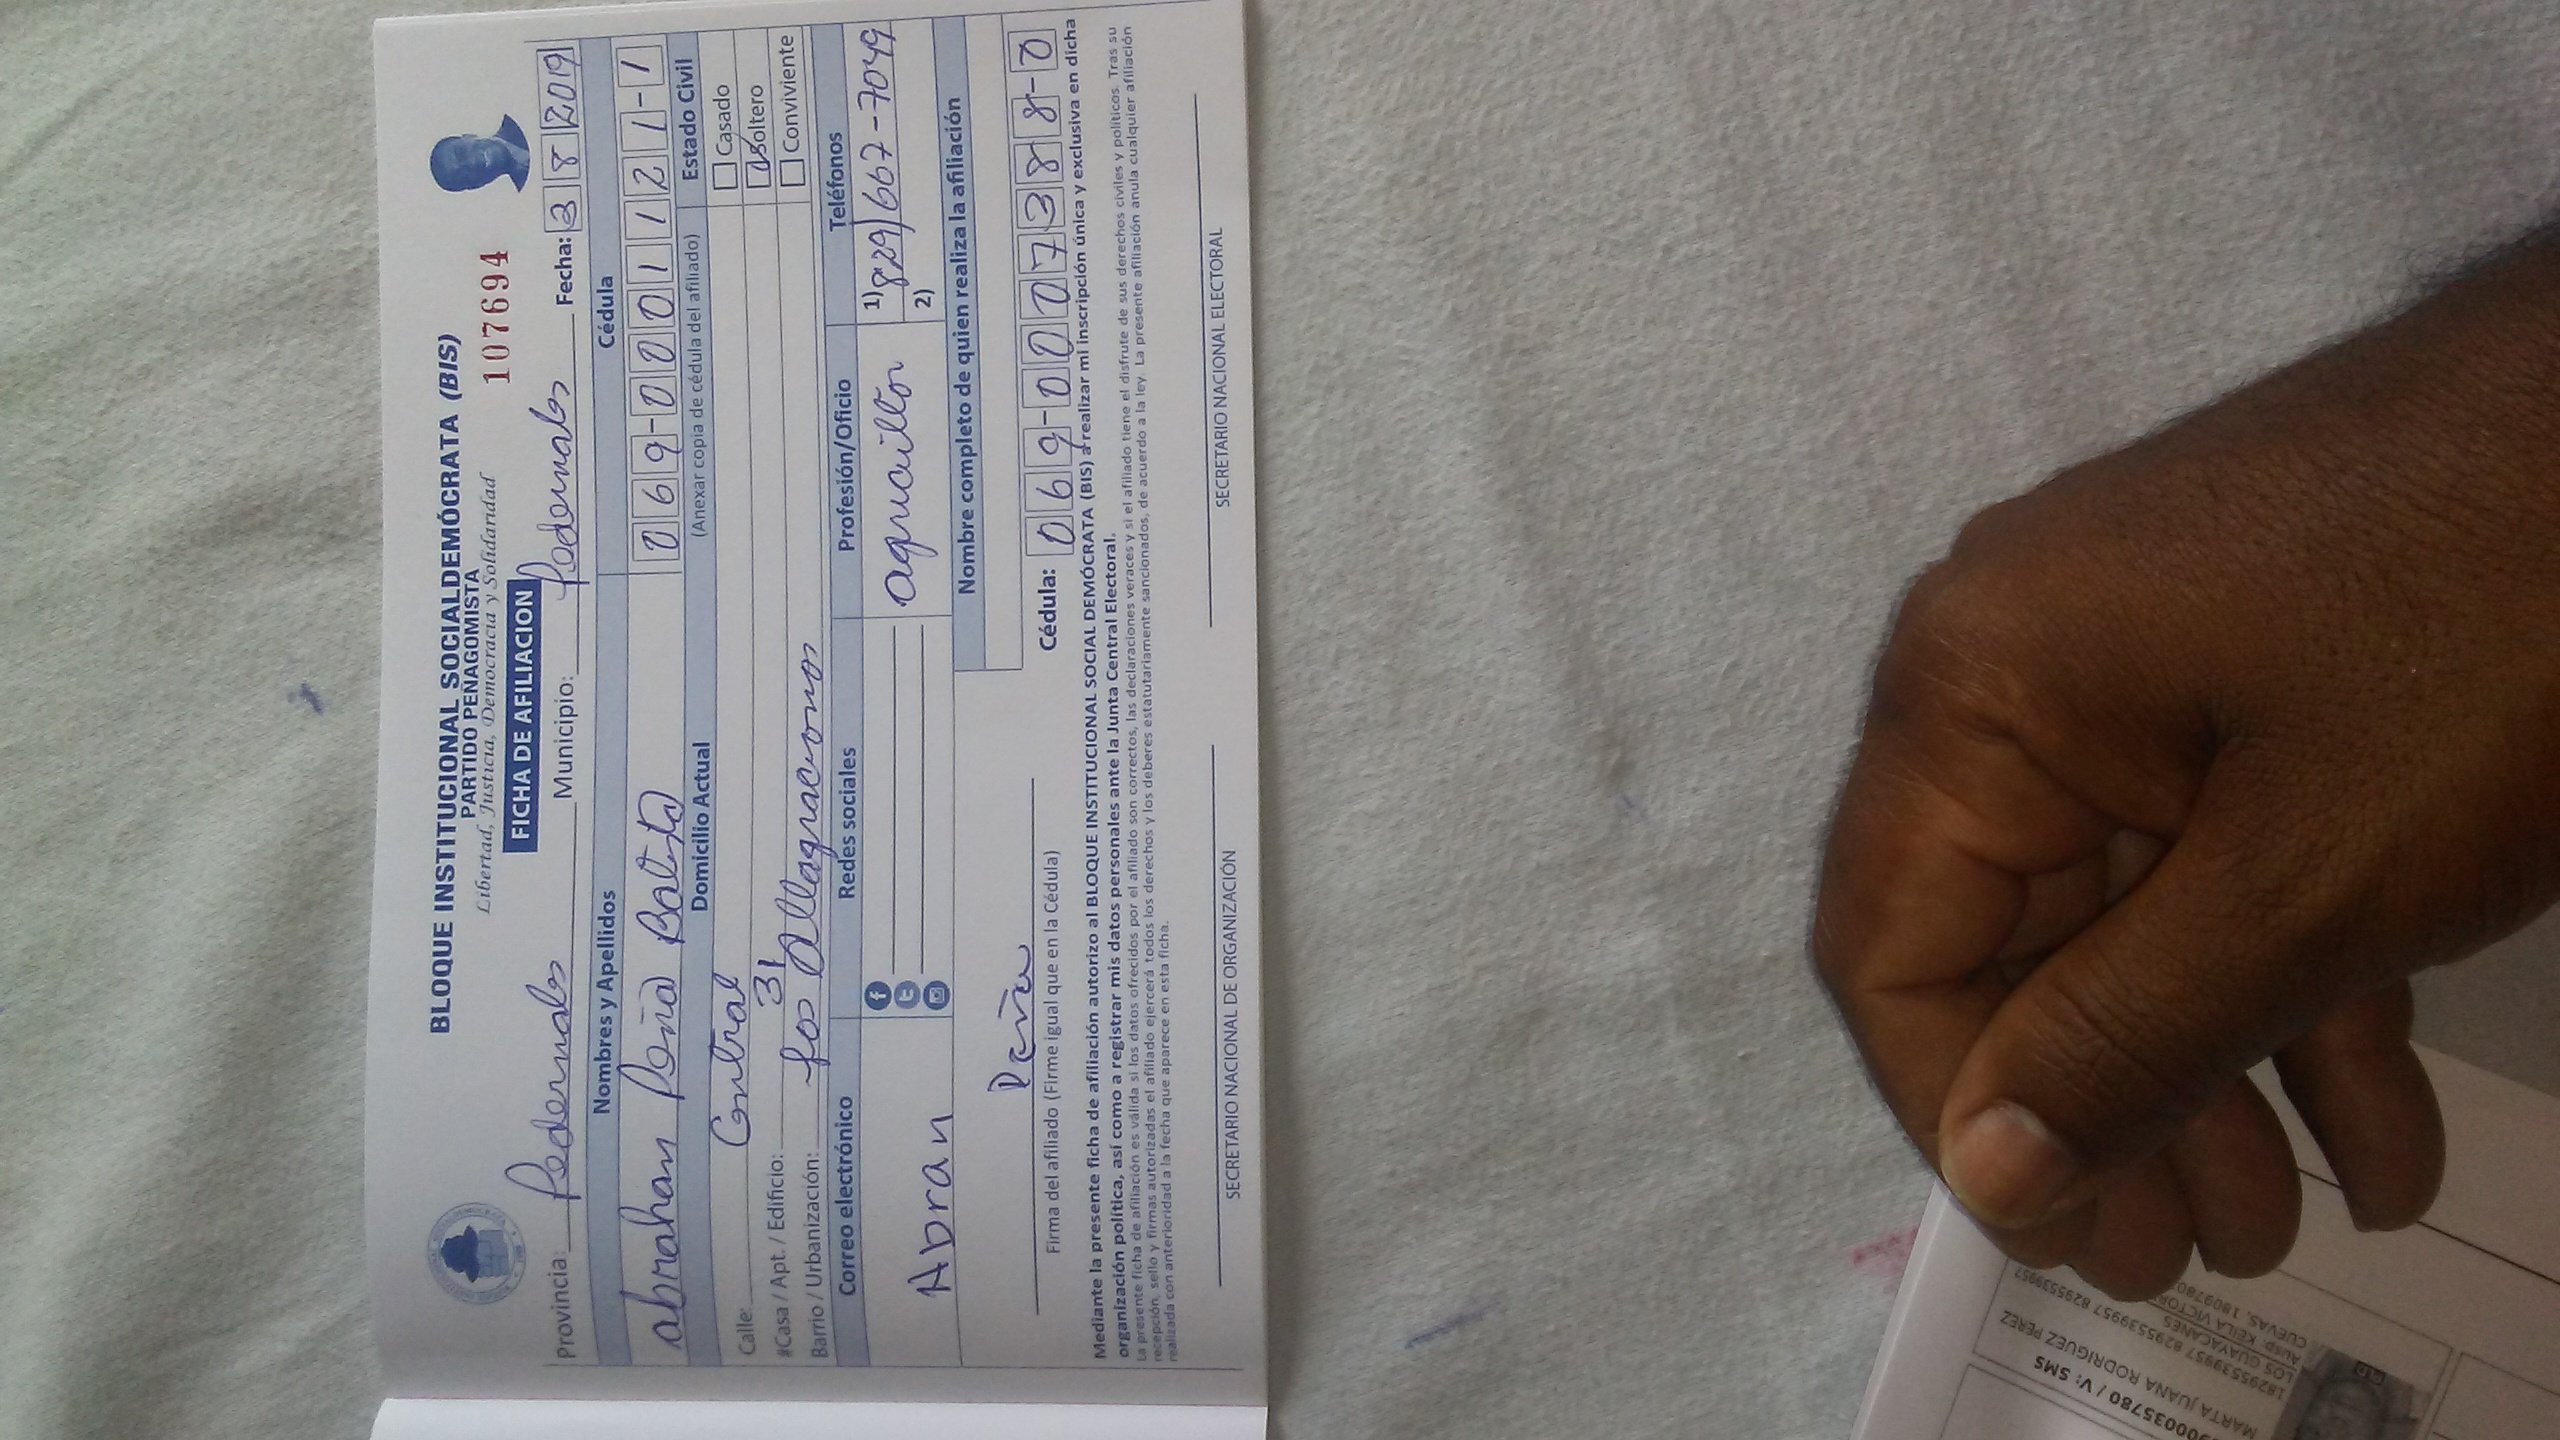 BLOQUE INSTITUCIONAL SOCIALDEMÓCRATA (BIS)
PARTIDO PEÑAGOMISTA
Libertad, Justicia, Democracia y Solidaridad
107694
FICHA DE AFILIACION
Provincia: Pedernales Municipio: Pedernales Fecha: 3 8 2019
Nombres y Apellidos Cédula
abraham Peña Batista 069-0001121-1
Domicilio Actual (Anexar copia de cédula del afiliado) Estado Civil
Calle: Central Casado
#Casa / Apt. / Edificio: 31 Soltero
Barrio / Urbanización: Los Allagraconos Conviviente
Correo electrónico Redes sociales Profesión/Oficio Teléfonos
agrucultor 1) 829) 667-7049
2)
Nombre completo de quien realiza la afiliación
Abran Peña
Cédula: 069-0007388-0
Firma del afiliado (Firme igual que en la Cédula)
Mediante la presente ficha de afiliación autorizo al BLOQUE INSTITUCIONAL SOCIAL DEMÓCRATA (BIS) a realizar mi inscripción única y exclusiva en dicha
organización política, así como a registrar mis datos personales ante la Junta Central Electoral.
La presente ficha de afiliación es válida si los datos ofrecidos por el afiliado son correctos, las declaraciones veraces y si el afiliado tiene el disfrute de sus derechos civiles y políticos. Tras su
recepción, sello y firmas autorizadas el afiliado ejercerá todos los derechos y los deberes estatutariamente sancionados, de acuerdo a la ley. La presente afiliación anula cualquier afiliación
realizada con anterioridad a la fecha que aparece en esta ficha.
SECRETARIO NACIONAL DE ORGANIZACIÓN SECRETARIO NACIONAL ELECTORAL
00035780 / V: SMS
MARTA JUANA RODRIGUEZ PEREZ
18295539957 8295539957
LOS GUAYACANES
CUEVAS,